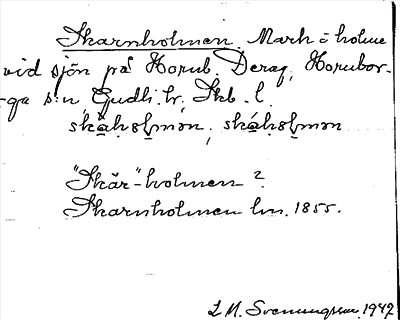 Skarnholmen. Mark o holme
vid sjön på Hornb. Deraq, Hornbor-
-ga s:n Gudh. hr, Skb. l.
skàhólmən, skáhólmən
"Skär"-holmen?
Skarnholmen lm. 1855.
L M. Svenungsson, 1942